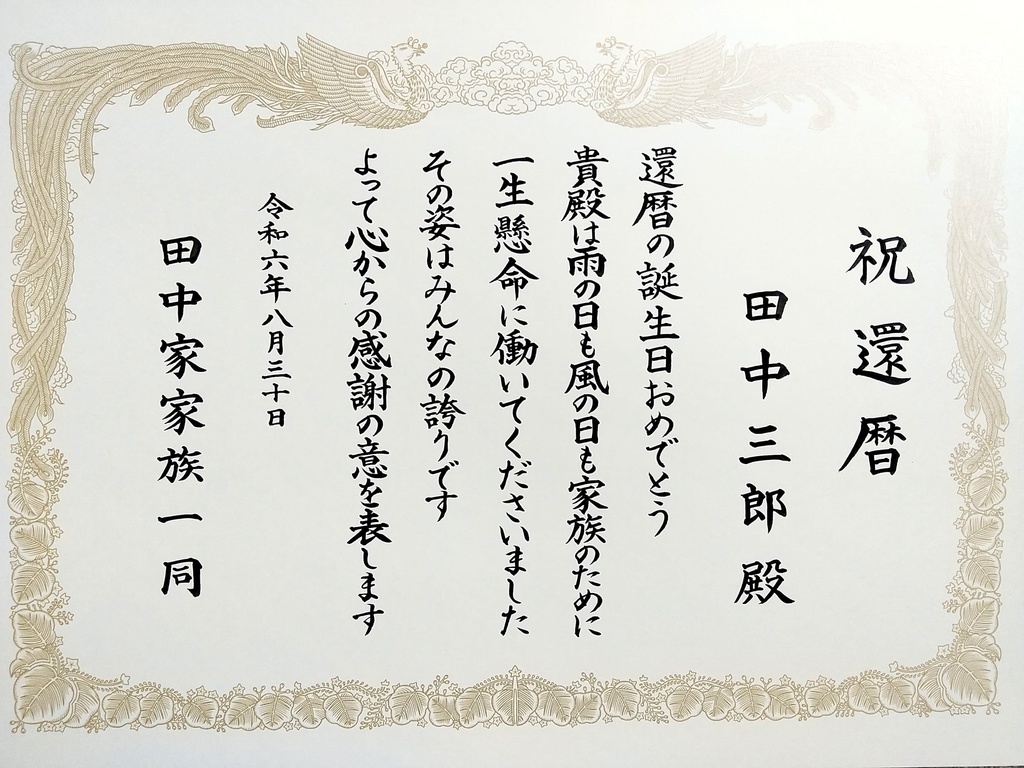 祝還暦
田中三郎殿
還暦の誕生日おめでとう
貴殿は雨の日も風の日も家族のために
一生懸命に働いてくださいました
その姿はみんなの誇りです
よって心からの感謝の意を表します
令和六年八月三十日
田中家家族一同